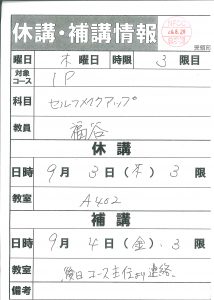 休講・補講情報
曜日 木 曜日 時限 3 限目
対象コース 1P
科目 セルフメイクアップ
教員 福谷
休講
日時 9 月 3 日 (木) 3 限
教室 A402
補講
日時 9 月 4 日 (金) 3 限
教室 後日コース主任より連絡
備考